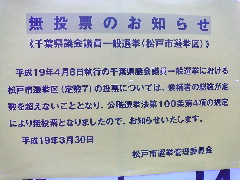 無投票のお知らせ
《千葉県議会議員一般選挙（松戸市選挙区）》
平成19年4月8日執行の千葉県議会議員一般選挙における
松戸市選挙区（定数7）の投票については、候補者の総数が定
数を超えないこととなり、公職選挙法第100条第4項の規定
により無投票となりましたので、お知らせいたします。
平成19年3月30日
松戸市選挙管理委員会